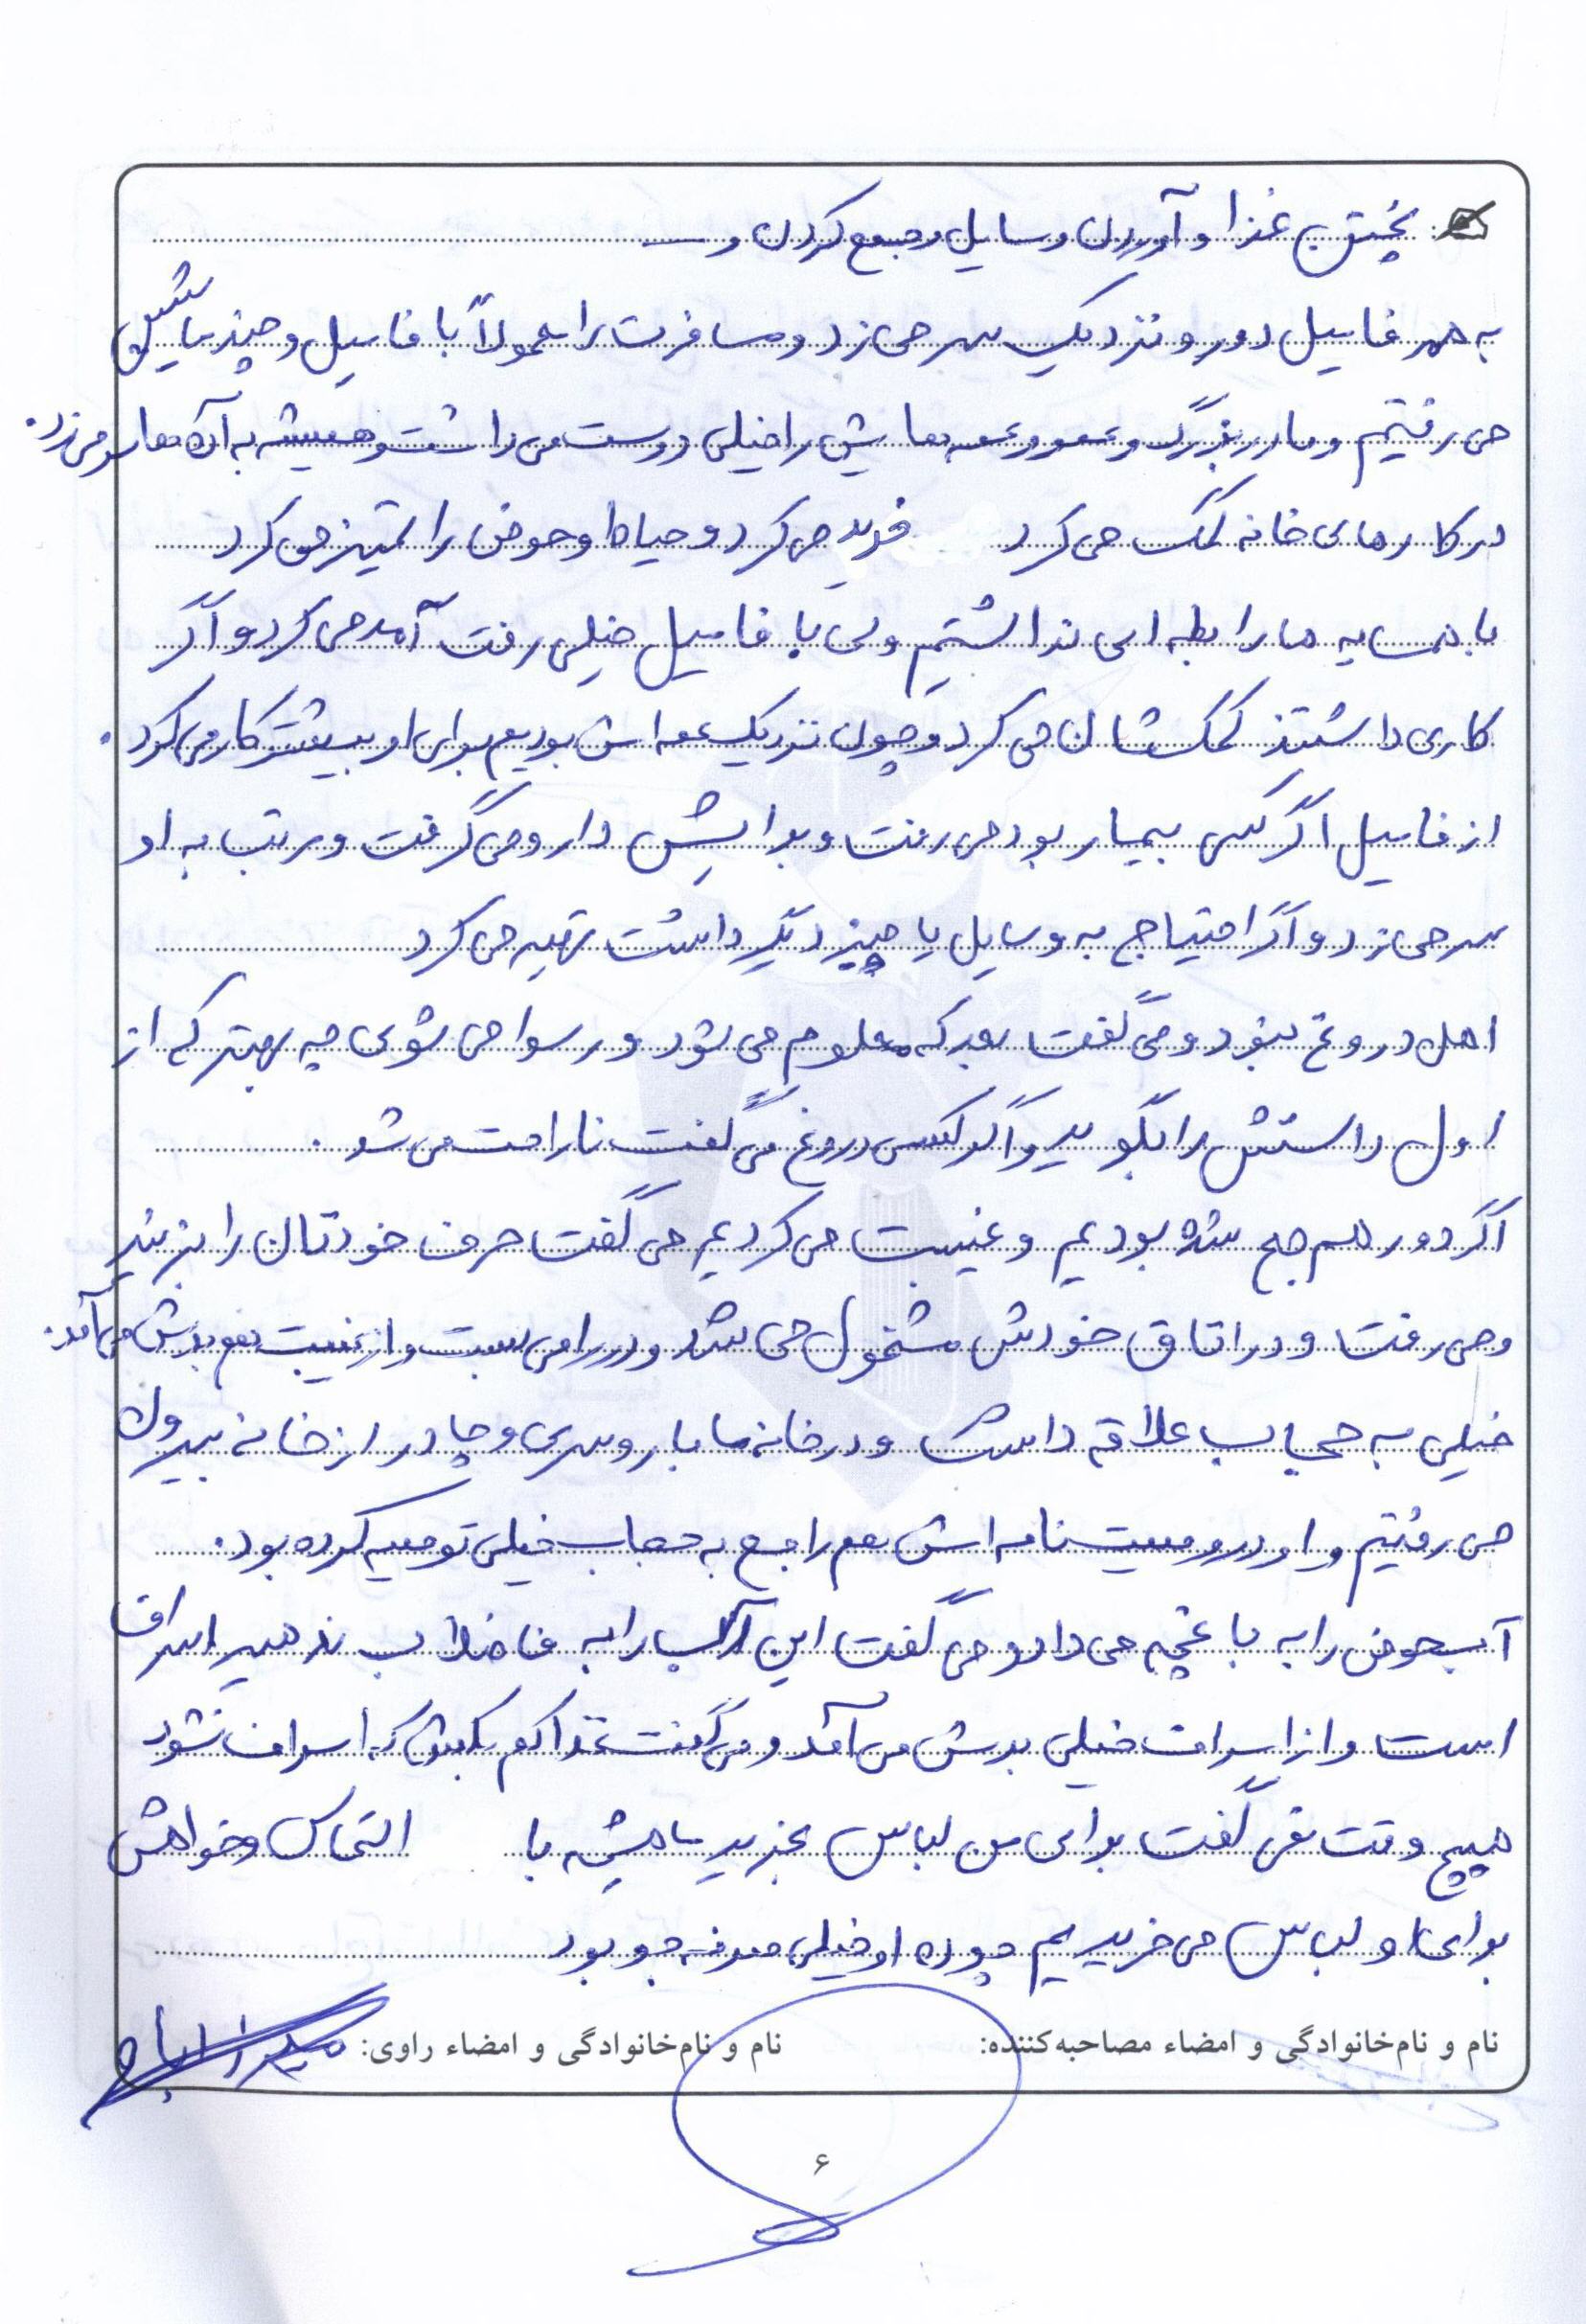 پختن غذا و آوردن وسایل و جمع کردن و
به همه فامیل دور و نزدیک سر می زد و مسافرت را معمولاً با فامیل و چند ماشین
می رفتیم و مادربزرگ و عمو و عمه هایش را خیلی دوست می داشت و همیشه به آن ها سر می زد.
در کارهای خانه کمک می کرد خرید می کرد و حیاط و حوض را تمیز می کرد
با همسایه ها رابطه ای نداشتیم ولی با فامیل خیلی رفت آمد می کرد و اگر
کاری داشتند کمک شان می کرد و چون نزدیک عمه اش بودیم برای او بیشتر کار می کرد.
از فامیل اگر کسی بیمار بود می رفت و برایش دارو می گرفت و مرتب به او
سر می زد و اگر احتیاج به وسایل یا چیز دیگر داشت تهیه می کرد
اهل دروغ نبود و می گفت بعد که معلوم می شود و رسوا می شوی چه بهتر که از
اول راستش را بگویید و اگر کسی دروغ می گفت ناراحت می شد.
اگر دور هم جمع شده بودیم و غیبت می کردیم می گفت حرف خودتان را بزنید
و می رفت و در اتاق خودش مشغول می شد و در را می بست و از غیبت هم بدش می آمد.
خیلی به حجاب علاقه داشت و در خانه ما با روسری و چادر از خانه بیرون
می رفتیم و او در وصیت نامه اش هم راجع به حجاب خیلی توصیه کرده بود.
آب حوض را به باغچه می داد و می گفت این آب را به فاضلاب ندهید اسراف
است و از اسراف خیلی بدش می آمد و می گفت غذا کم بکش که اسراف نشود
هیچ وقت نمی گفت برای من لباس بخرید ما همیشه با التماس و خواهش
برای او لباس می خریدیم چون او خیلی صرفه جو بود
نام و نام‌خانوادگی و امضاء مصاحبه‌کننده: نام و نام‌خانوادگی و امضاء راوی:
۶